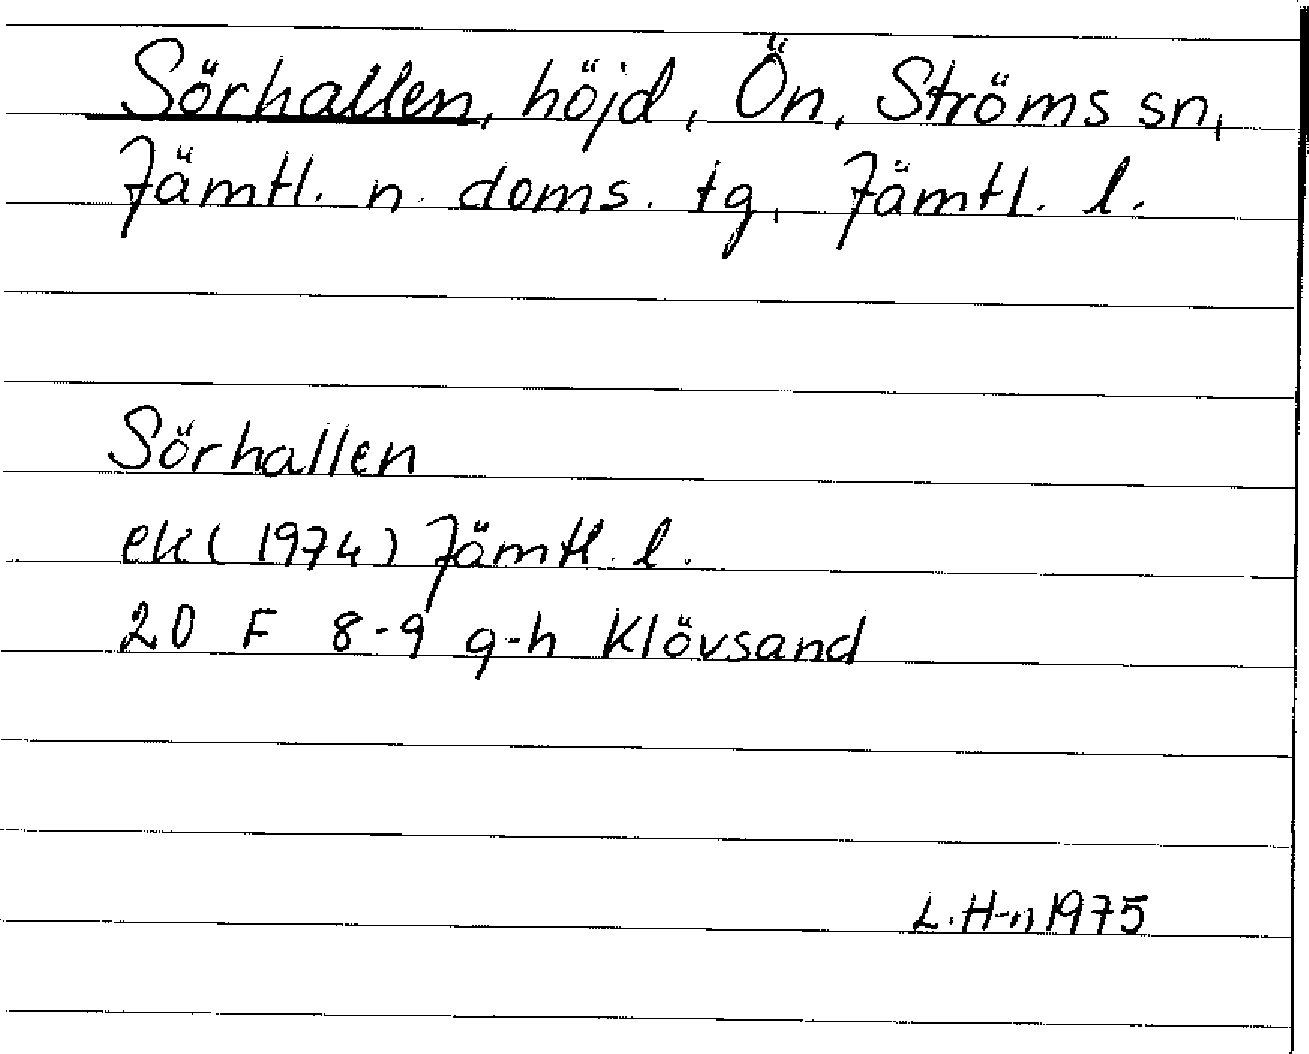 Sörhallen, höjd, Ön, Ströms sn,
Jämtl. n. doms. tg, Jämtl. l.
Sörhallen
ek (1974) Jämtl. l.
20 F 8-9 g-h Klövsand
L. H-n 1975